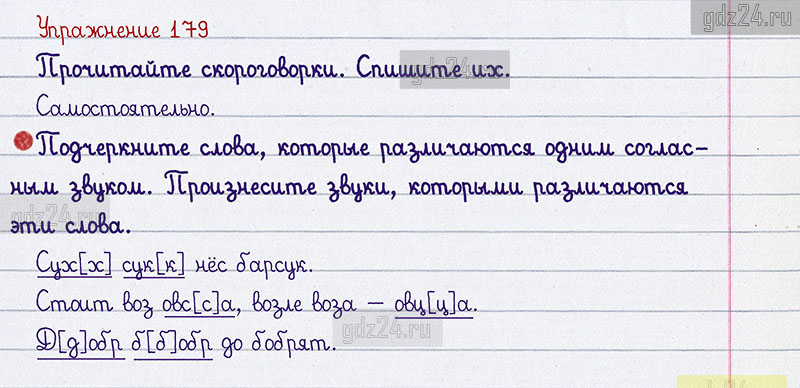 gdz24.ru
Упражнение 179
Прочитайте скороговорки. Спишите их.
gdz24.ru
Самостоятельно.
Подчеркните слова, которые различаются одним соглас-
ным звуком. Произнесите звуки, которыми различаются
gdz24.ru
эти слова.
Сух[х] сук[к] нёс барсук.
Стоит воз овс[с]а, возле воза – овц[ц]а.
gdz24.ru
Д[д]обр б[б]обр до бобрят.